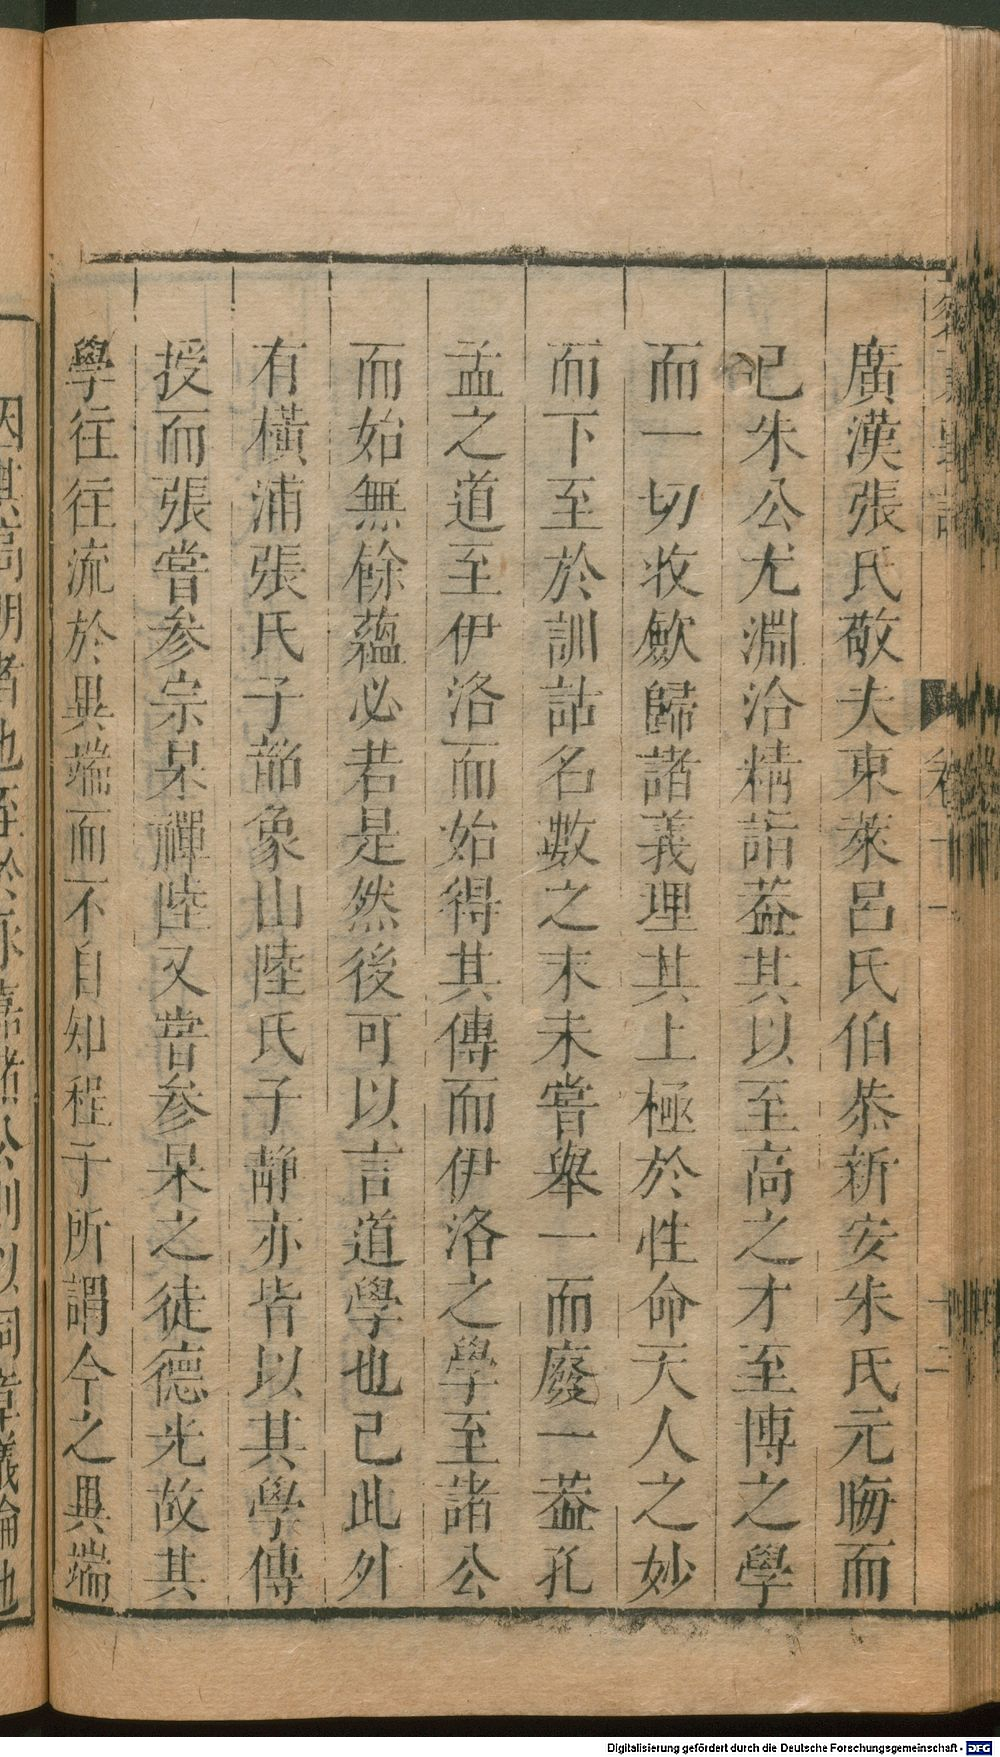 廣漢張氏敬夫東萊呂氏伯恭新安朱氏元晦而
已朱公尤淵洽精詣葢其以至高之才至博之學
而一切收斂歸諸義理其上極於性命天人之妙
而下至於訓詁名數之末未嘗舉一而廢一葢孔
孟之道至伊洛而始得其傳而伊洛之學至諸公
而始無餘蘊必若是然後可以言道學也已此外
有橫浦張氏子韶象山陸氏子靜亦皆以其學傳
授而張嘗參宗杲禪陸又嘗參杲之徒德光故其
學往往流於異端而不自知程子所謂今之異端
因其高明者也至於永嘉諸公則以詞章議論也
Digitalisierung gefördert durch die Deutsche Forschungsgemeinschaft - DFG